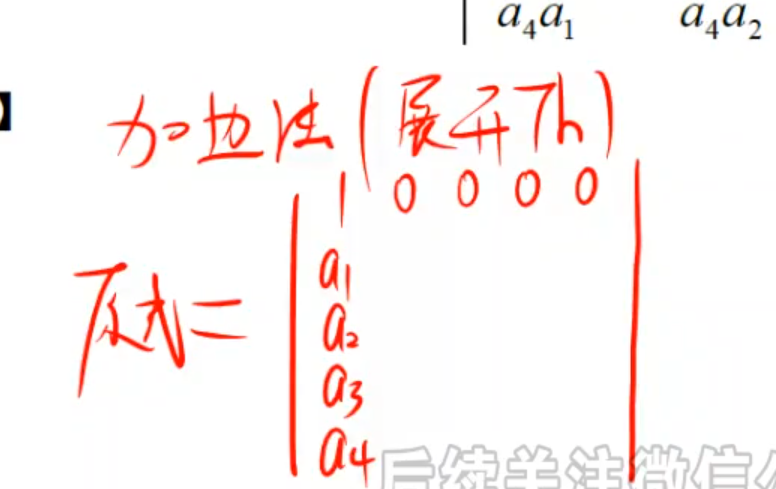 a₄a₁ a₄a₂
】
加边法(展开Th)
1 0 0 0 0
a₁
原式=
a₂
a₃
a₄
后续关注微信公